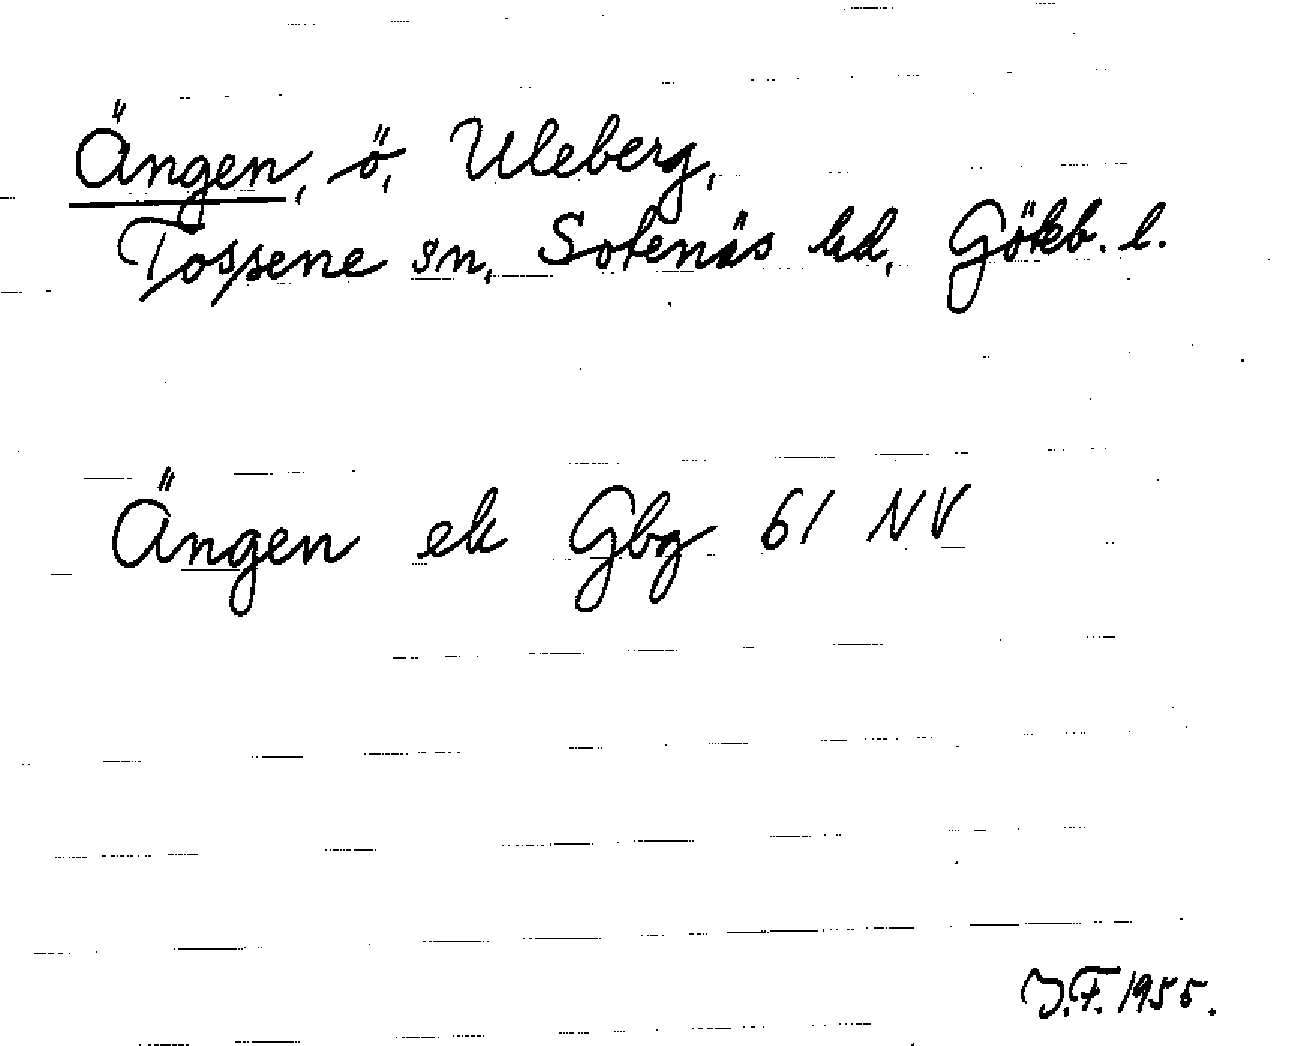 Ängen, ö, Uleberg,
Tossene sn, Sotenäs hd, Göteb. l.
Ängen ek Gbg 61 NV
J.F. 1955.